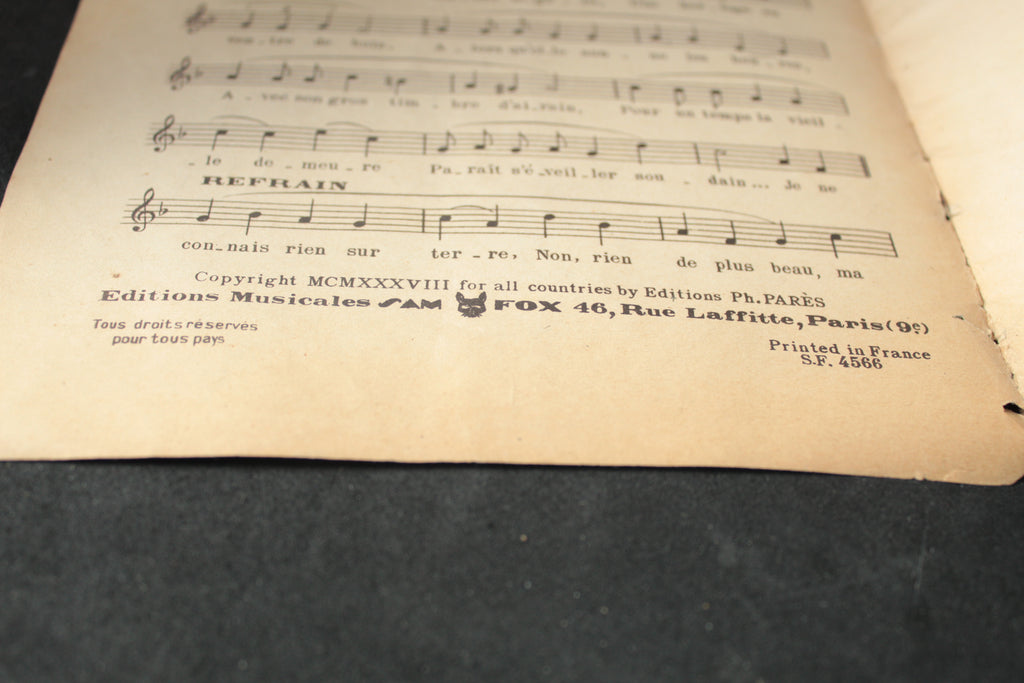 ten_tre de
A _ vec son gros tim _ bre d'ai_rain, Pour un temps la vieil _
_ le de _ meu _ re Pa_rait s'é_veil_ler sou _ dain... Je ne
REFRAIN
con_nais rien sur ter_re, Non, rien de plus beau, ma
Copyright MCMXXXVIII for all countries by Editions Ph. PARÈS
Editions Musicales SAM FOX 46, Rue Laffitte, Paris (9e)
Tous droits réservés
pour tous pays
Printed in France
S.F. 4566